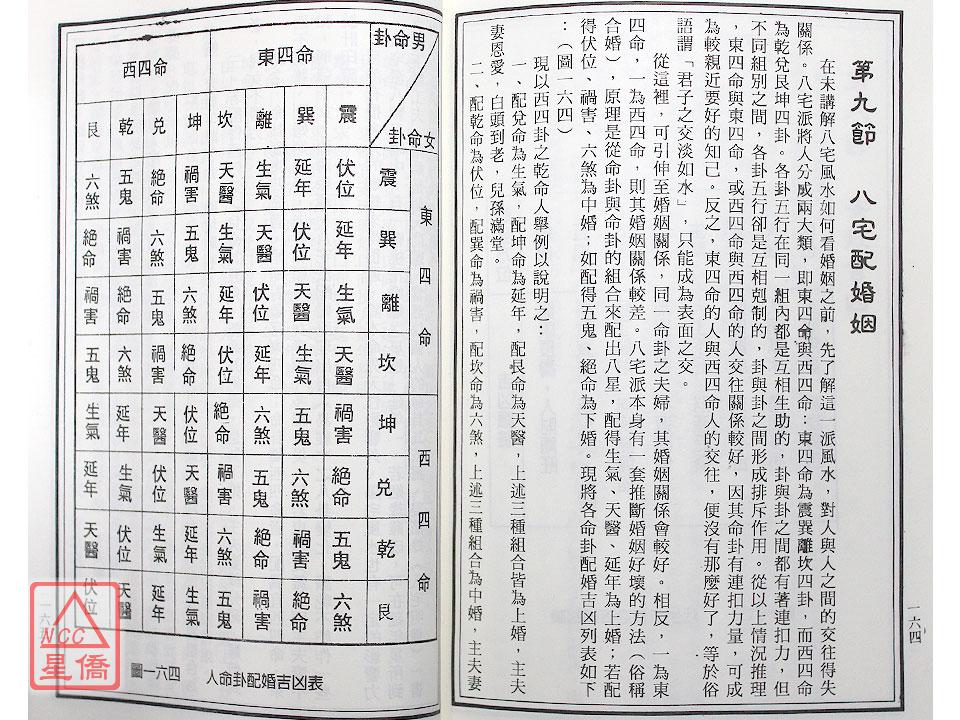 第九節　八宅配婚姻
在未講解八宅風水如何看婚姻之前，先了解這一派風水，對人與人之間的交往得失
關係。八宅派將人分成兩大類，即東四命與西四命：東四命為震巽離坎四卦，而西四命
為乾兌艮坤四卦。各卦五行在同一組內都是互相生助的，卦與卦之間都有著連扣力，但
不同組別之間，各卦五行卻是互相剋制的，卦與卦之間形成排斥作用。從以上情況推理
，東四命與東四命，或西四命與西四命的人交往關係較好，因其命卦有連扣力量，可成
為較親近要好的知己。反之，東四命的人與西四命人的交往，便沒有那麼好了，等於俗
語謂「君子之交淡如水」，只能成為表面之交。
從這裡，可引伸至婚姻關係，同一命卦之夫婦，其婚姻關係會較好。相反，一為東
四命，一為西四命，則其婚姻關係較差。八宅派本身有一套推斷婚姻好壞的方法（俗稱
合婚），原理是從命卦與命卦的組合來配出八星，配得生氣、天醫、延年為上婚；若配
得伏位、禍害、六煞為中婚；如配得五鬼、絕命為下婚。現將各命卦配婚吉凶列表如下
：（圖一六四）
現以西四卦之乾命人舉例以說明之：
一、配兌命為生氣，配坤命為延年，配艮命為天醫，上述三種組合皆為上婚，主夫
妻恩愛，白頭到老，兒孫滿堂。
二、配乾命為伏位，配巽命為禍害，配坎命為六煞，上述三種組合為中婚，主夫妻
一六四
西四命 東四命 男命卦 女命卦
艮 乾 兌 坤 坎 離 巽 震
東四命
六煞 五鬼 絕命 禍害 天醫 生氣 延年 伏位 震
絕命 禍害 六煞 五鬼 生氣 天醫 伏位 延年 巽
禍害 絕命 五鬼 六煞 延年 伏位 天醫 生氣 離
五鬼 六煞 禍害 絕命 伏位 延年 生氣 天醫 坎
西四命
生氣 延年 天醫 伏位 絕命 六煞 五鬼 禍害 坤
延年 生氣 伏位 天醫 禍害 五鬼 六煞 絕命 兌
天醫 伏位 生氣 延年 六煞 絕命 禍害 五鬼 乾
伏位 天醫 延年 生氣 五鬼 禍害 絕命 六煞 艮
圖一六四 人命卦配婚吉凶表
NCC
星僑